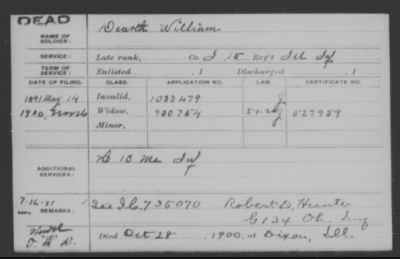 DEAD
NAME OF SOLDIER: Dearth William
SERVICE: Late rank, Co. I 15 Reg't Ill Inf
TERM OF SERVICE: Enlisted , 1 Discharged , 1
DATE OF FILING. CLASS. APPLICATION NO. LAW. CERTIFICATE NO.
1891 May 14 Invalid, 1033479
1900, Widow, 730754 527959
Minor,
ADDITIONAL SERVICES: D 10 Inf
7-16-31
REMARKS: 735070 Robert D. Hunter
G 134 Oh. Inf
Died Oct 28, 1900, at Dixon, Ill.